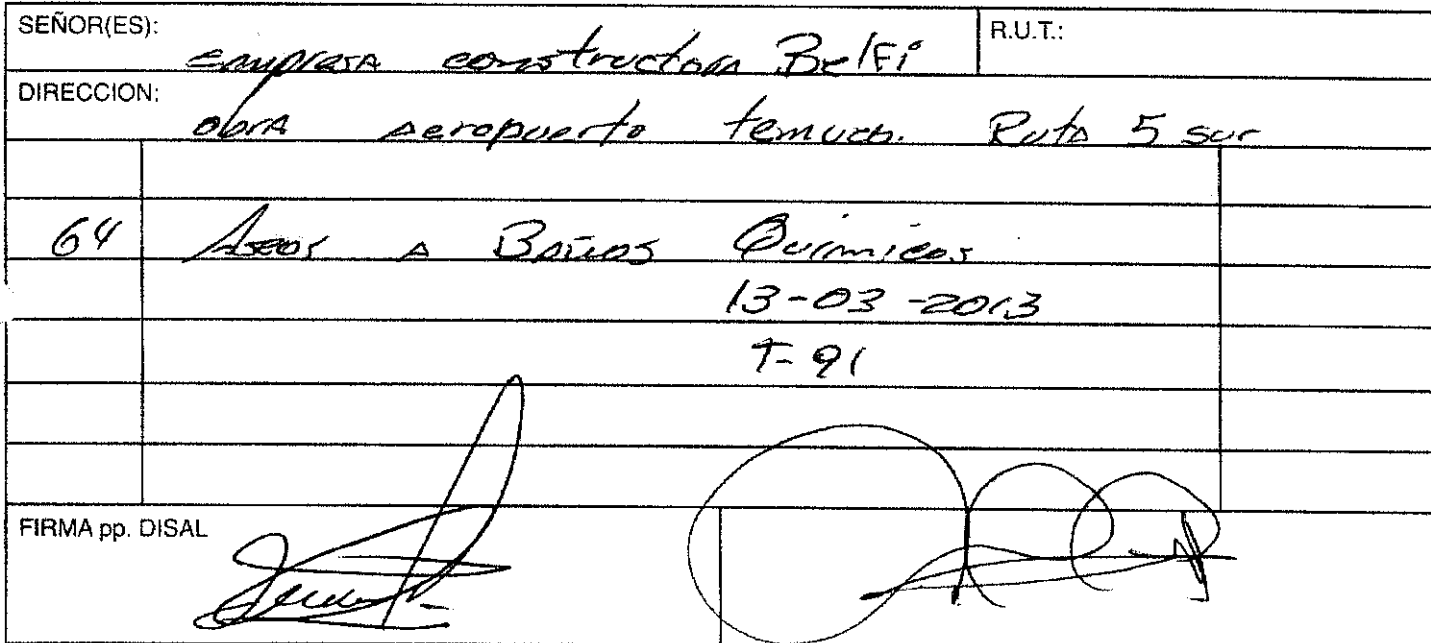 SEÑOR(ES): empresa constructora Belfi R.U.T.:
DIRECCION: obra aeropuerto temuco. Ruta 5 sur
64 Aseos a Baños Químicos
13-03-2013
T-91
FIRMA pp. DISAL